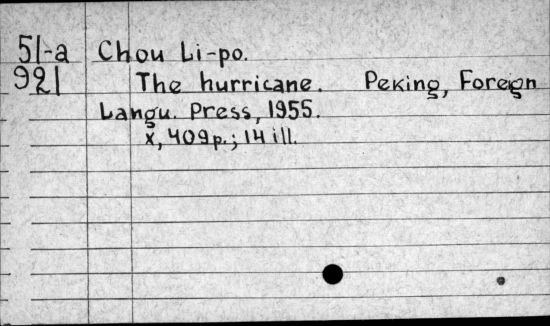 51-a Chou Li-po.
921 The hurricane. Peking, Foreign
Langu. Press, 1955.
x, 409p.; 14 ill.